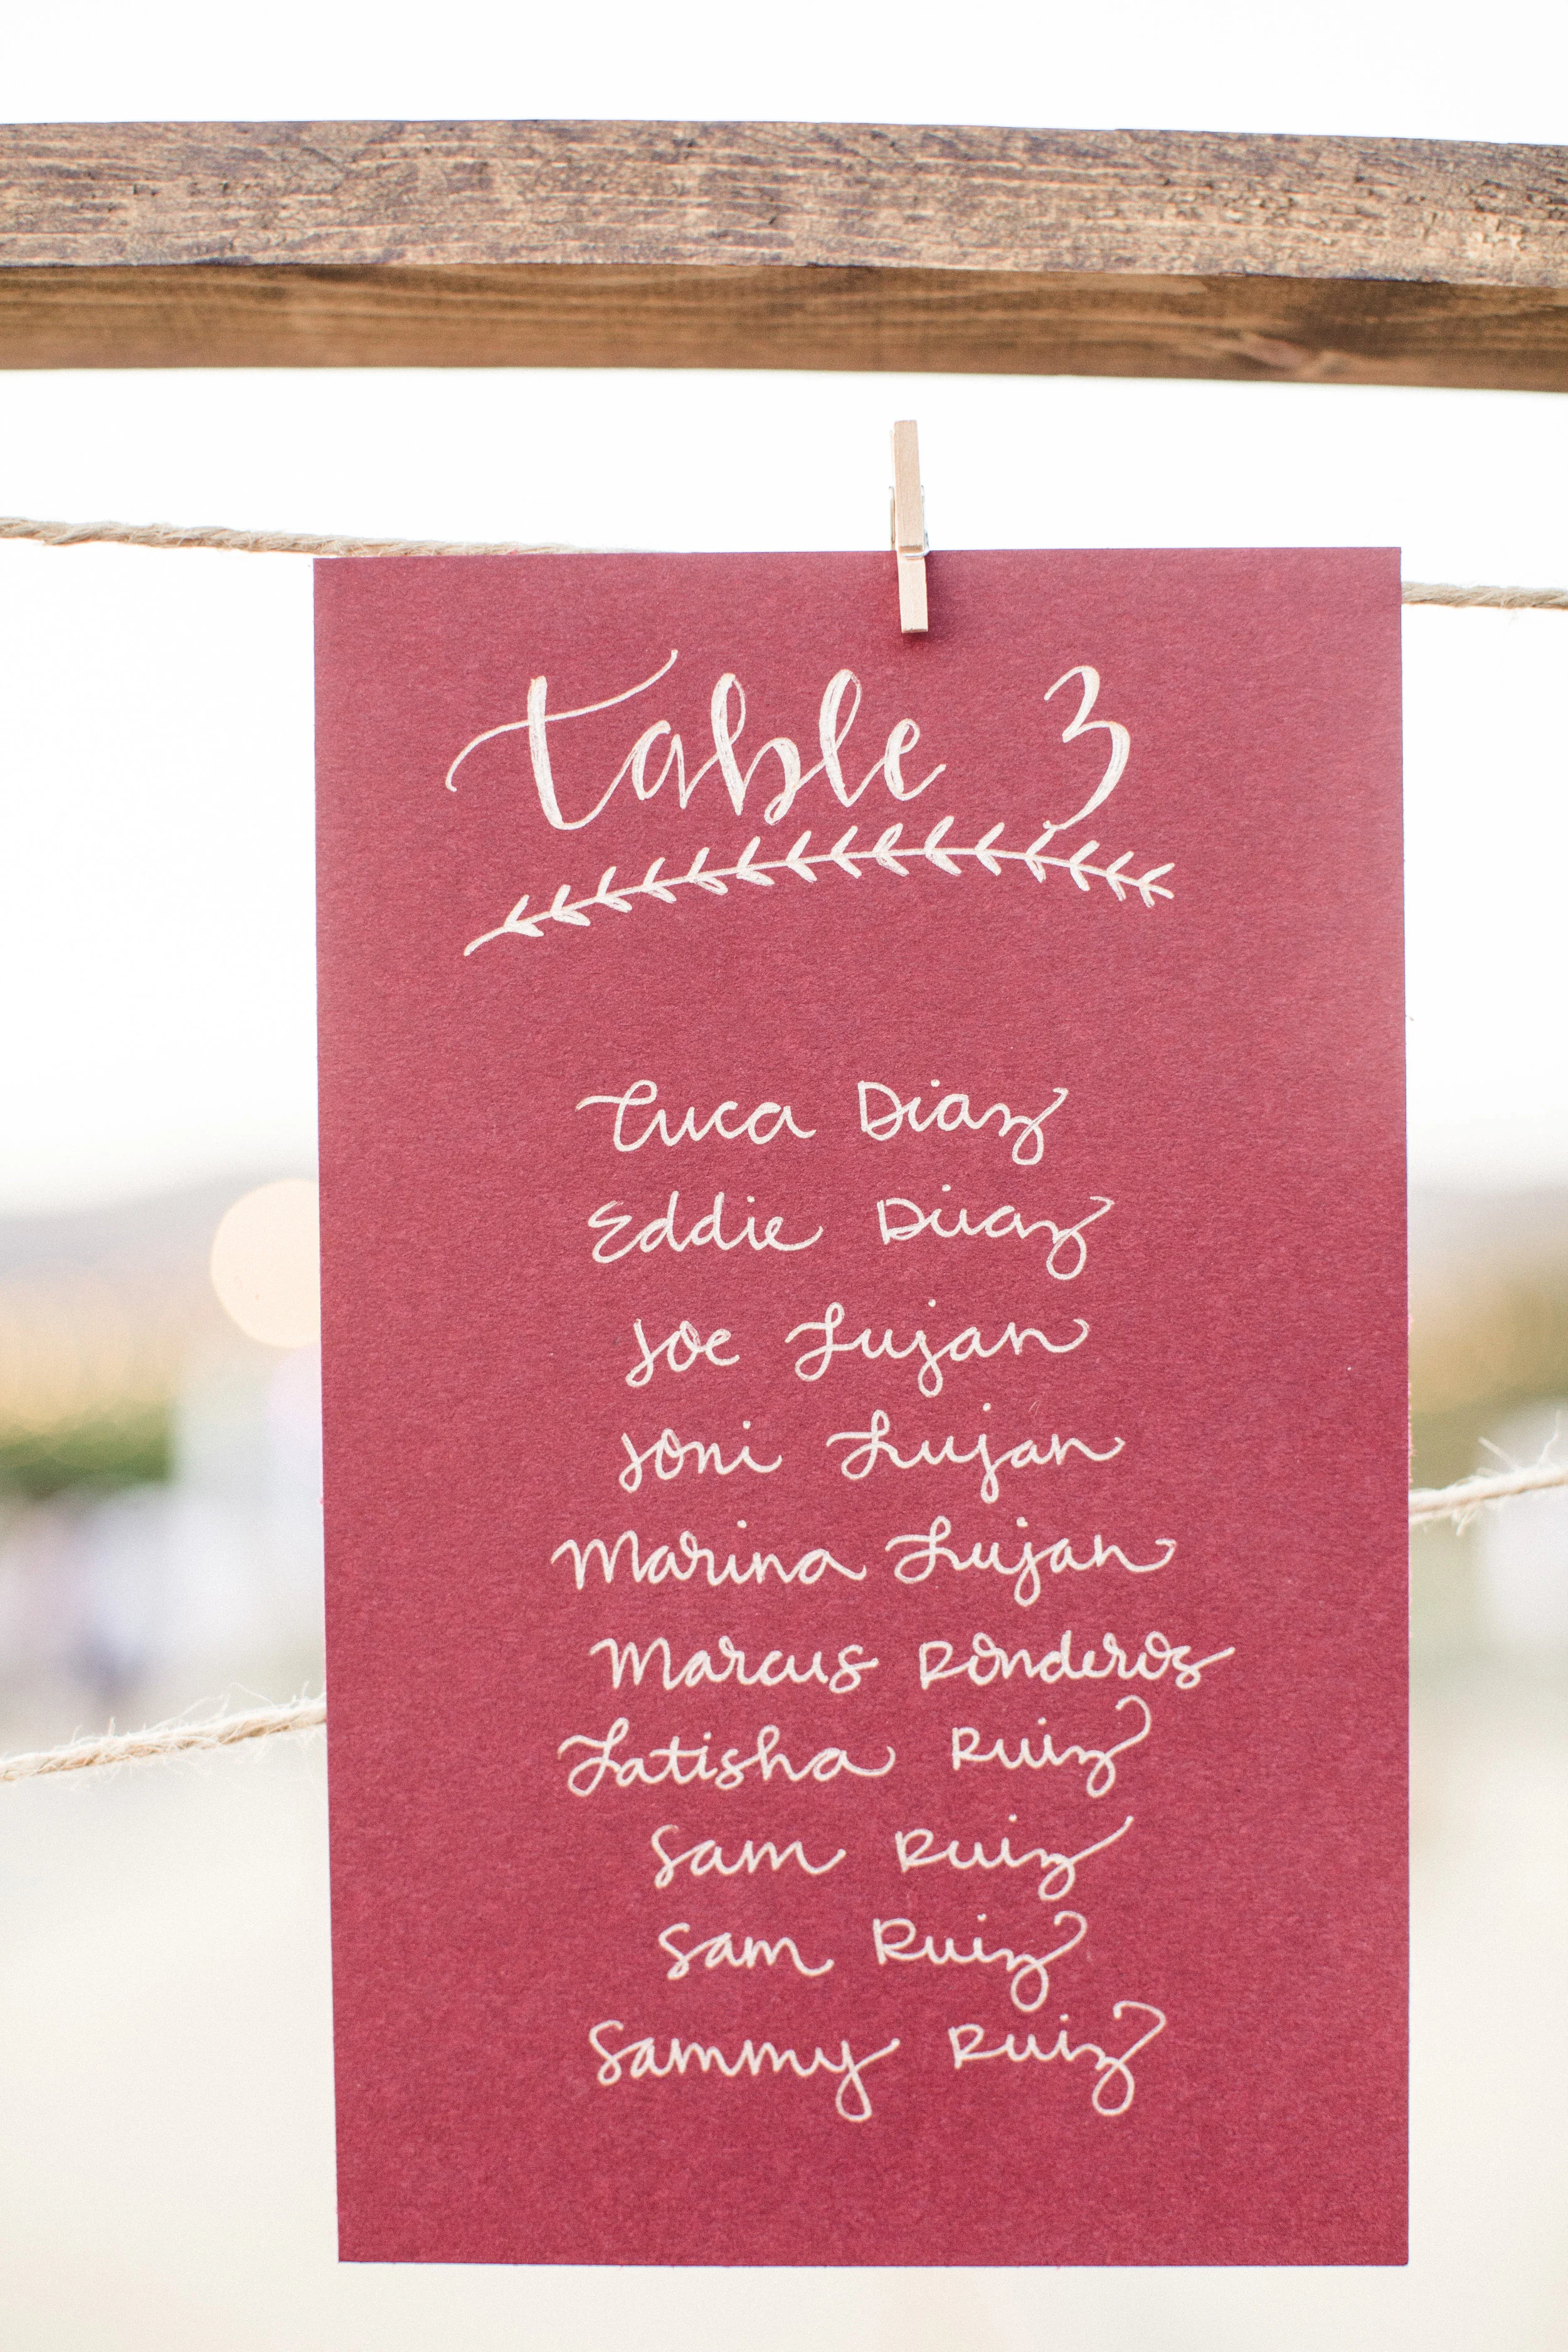 Table 3
Luca Diaz
Eddie Diaz
Joe Lujan
Joni Lujan
Marina Lujan
Marcus Ronderos
Latisha Ruiz
Sam Ruiz
Sam Ruiz
Sammy Ruiz